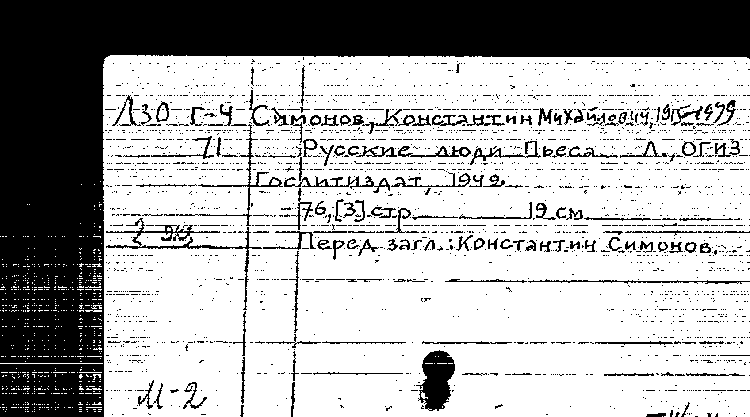 Л30 Г-4 Симонов, Константин Михайлович, 1915-1979
71 Русские люди Пьеса Л., ОГИЗ
Гослитиздат, 1942.
76,[3] стр. 19 см
2 экз Перед загл.: Константин Симонов.
М-2